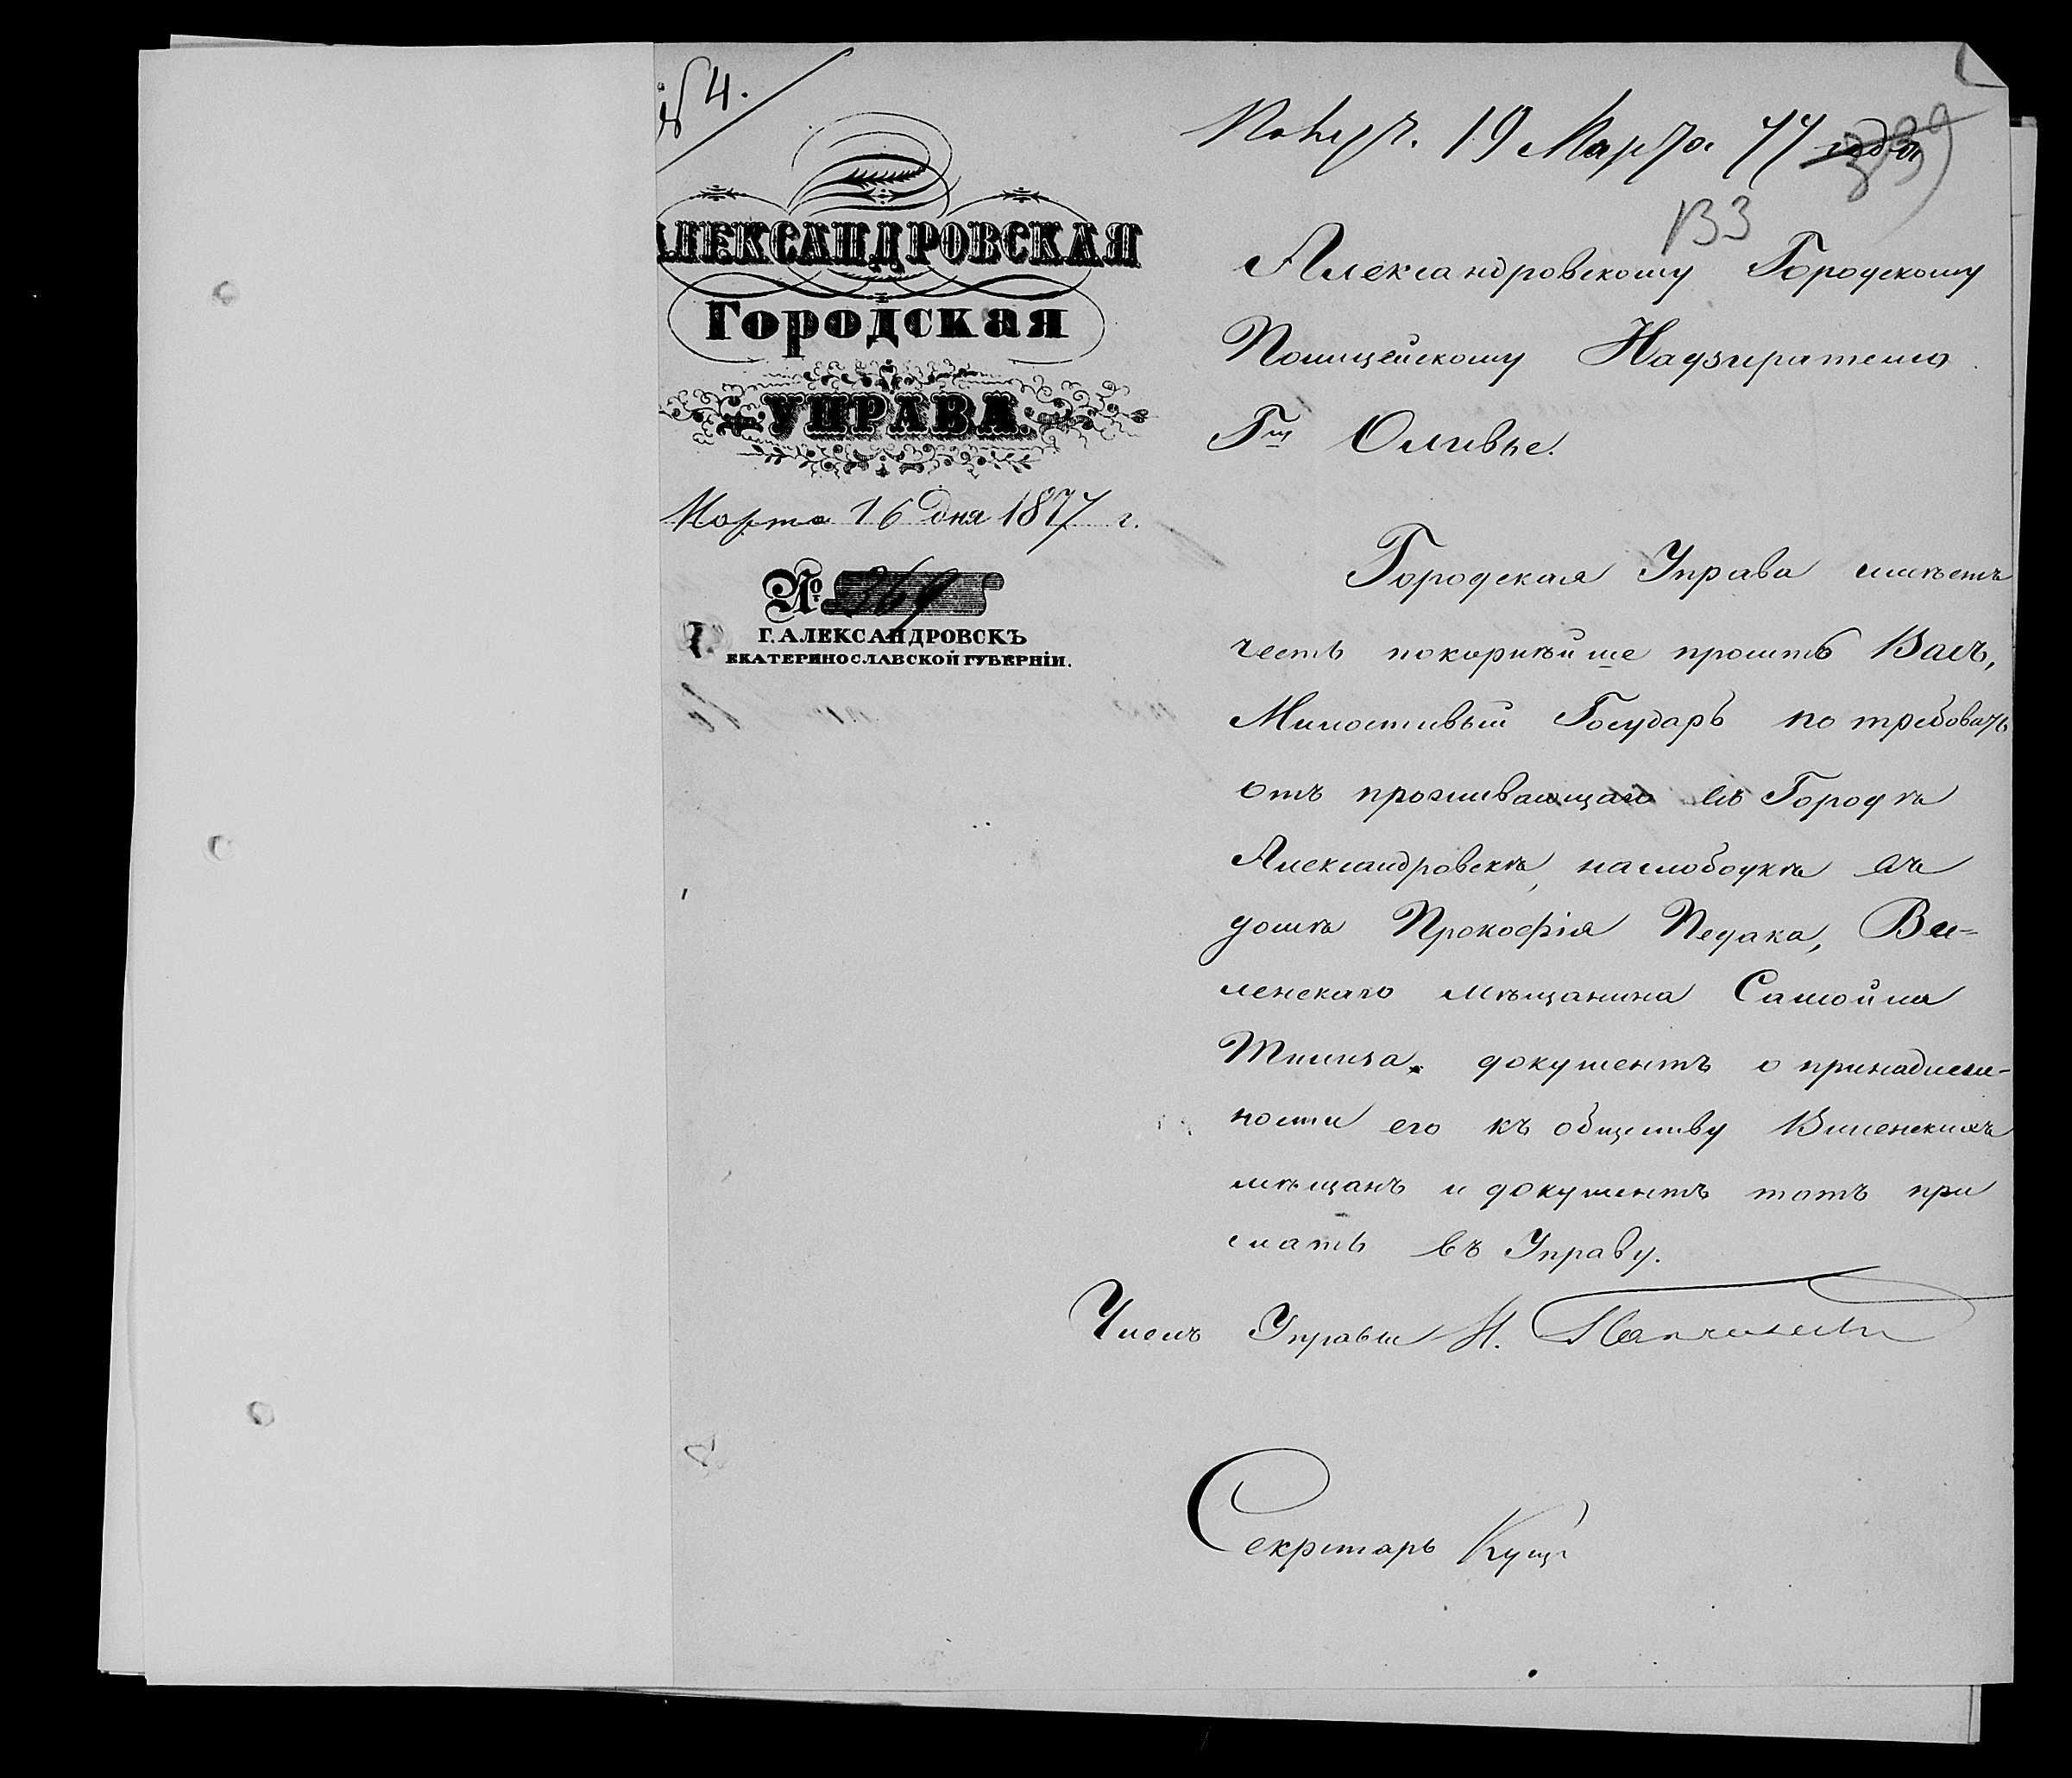 № 4.
АЛЕКСАНДРОВСКАЯ
Городская
УПРАВА.
Марта 16 дня 1877 г.
№ 369
Г. АЛЕКСАНДРОВСКЪ
ЕКАТЕРИНОСЛАВСКОЙ ГУБЕРНІИ.
19 Марта 77 года
339
133
Александровскому Городскому
Полицейскому Надзирателю
Гну Оливье.
Городская Управа имѣетъ
честь покорнѣйше просить Васъ,
Милостивый Государь по требовать
отъ проживающаго въ Городѣ
Александровскѣ, на слободкѣ въ
домѣ Прокофія Педака, Ви-
ленскаго мѣщанина Самойла
документъ о принадлеж-
ности его къ обществу Виленскихъ
мѣщанъ и документъ тотъ при
слать въ Управу.
Членъ Управы Н.
Секретарь Кущъ